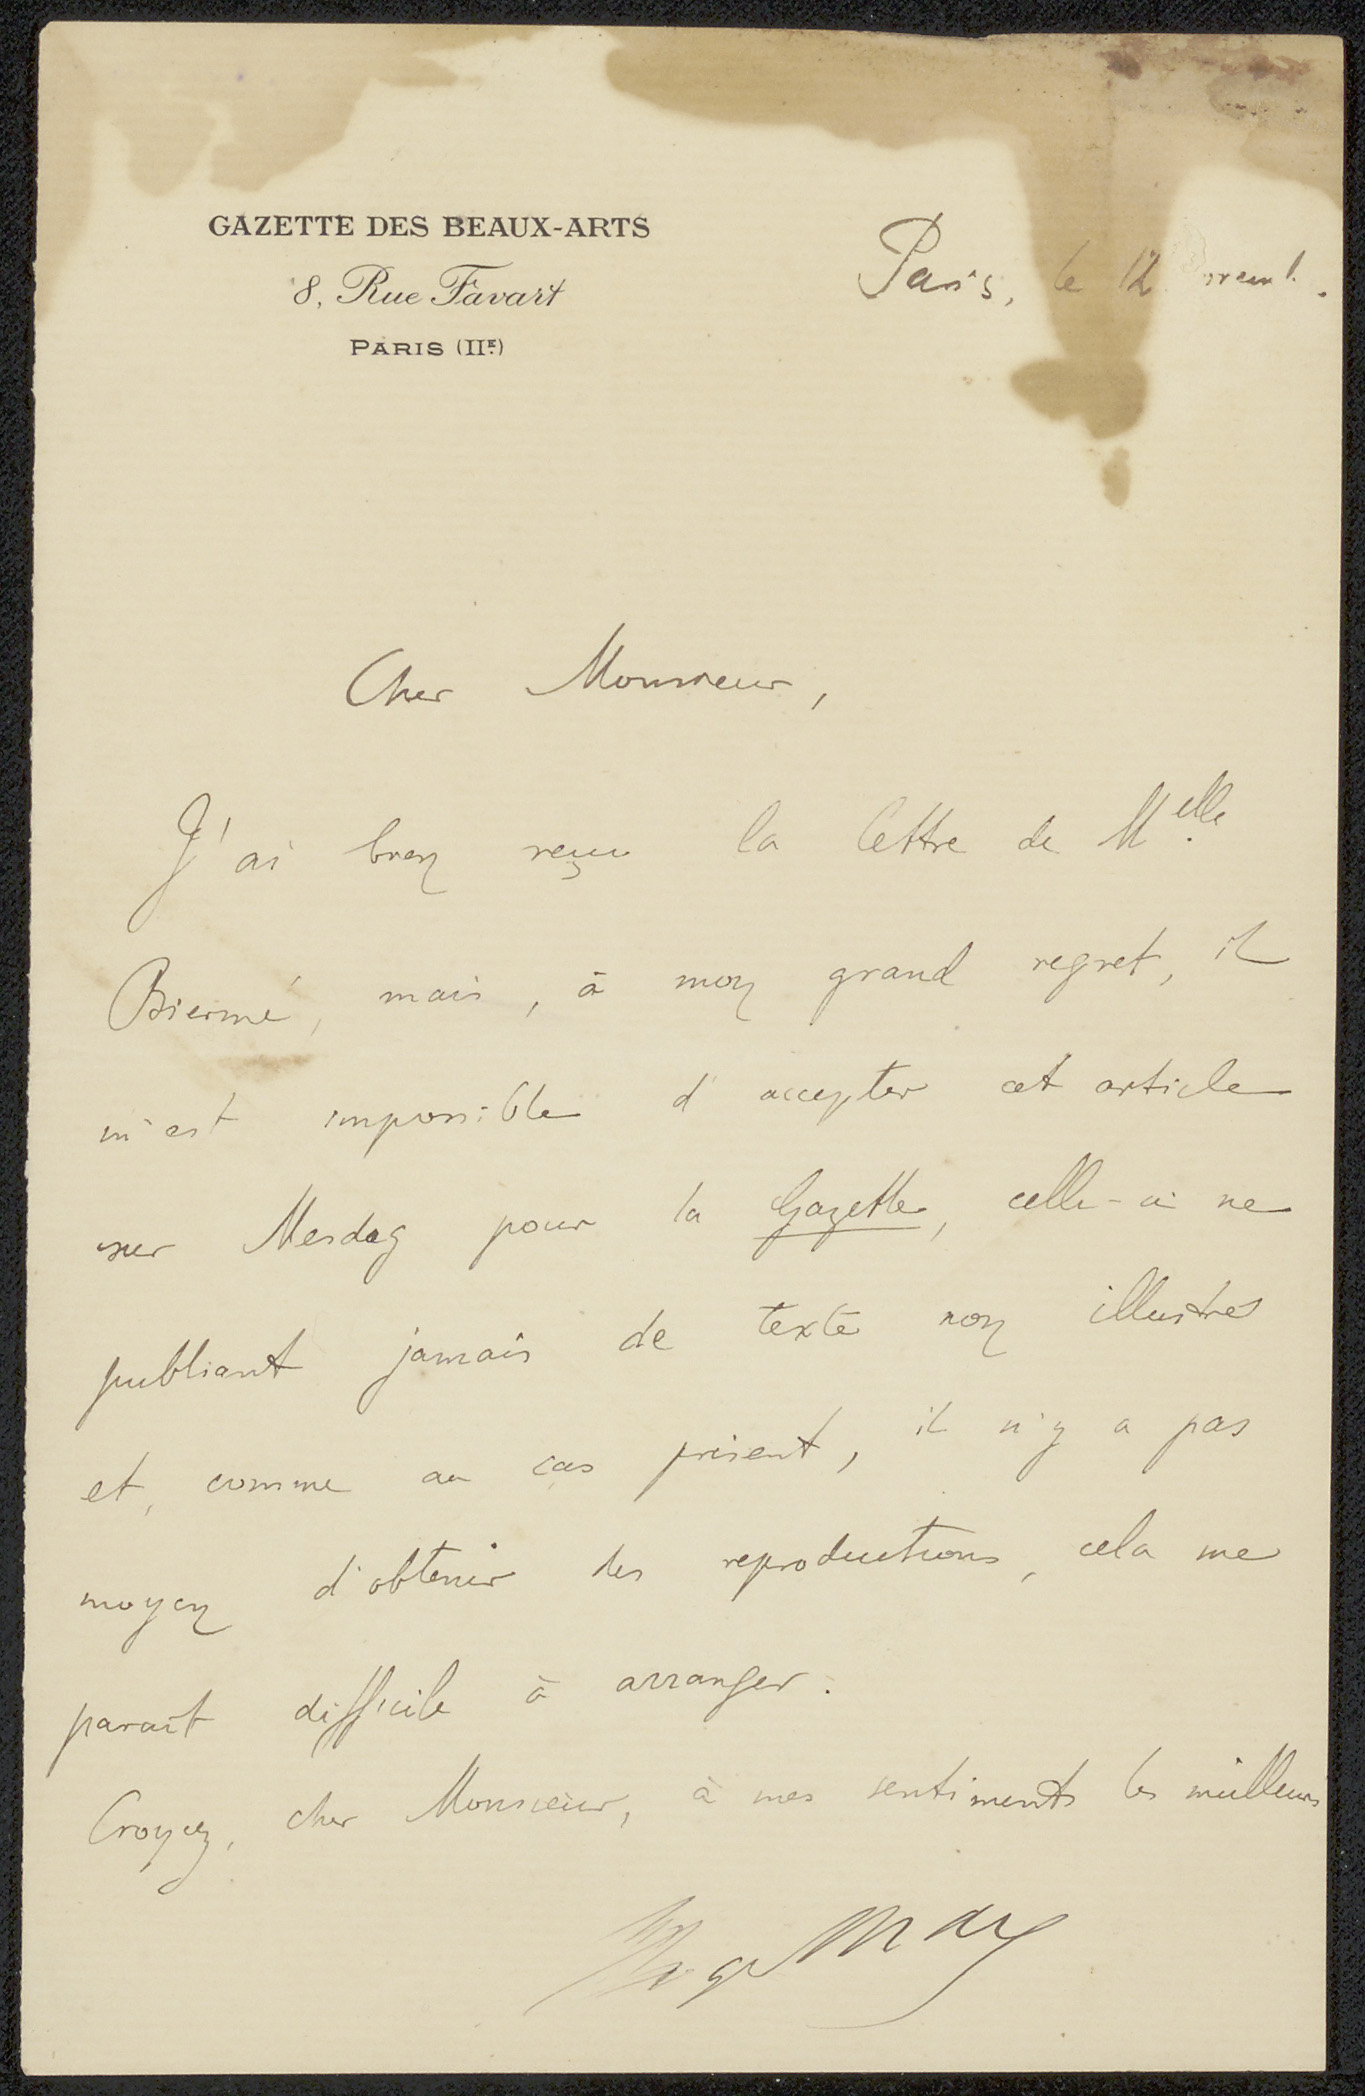 GAZETTE DES BEAUX-ARTS
8, Rue Favart
PARIS (IIE)
Paris, le 12
Cher Monsieur,
J'ai bien reçu la lettre de Melle
Biermé, mais, à mon grand regret, il
m'est impossible d'accepter cet article
sur Mesdag pour la Gazette, celle-ci ne
publiant jamais de texte non illustrés
et, comme au cas présent, il n'y a pas
moyen d'obtenir des reproductions, cela me
parait difficile à arranger.
Croyez, cher Monsieur, à mes sentiments les meilleurs
Marx